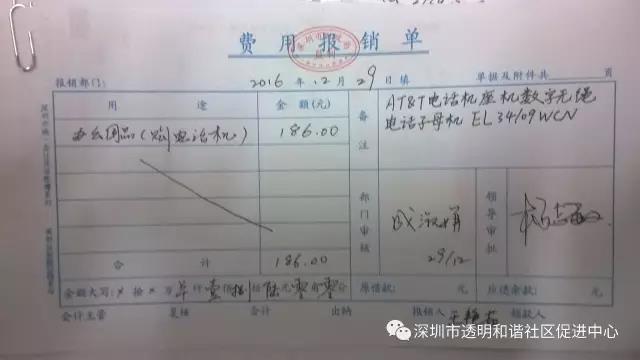 费用报销单
报销部门： 2016年12月29日填 单据及附件共 页
用途 金额(元) 备注
办公用品(购电话机) 186.00
AT&T电话机座机数字无绳
电话子母机 EL34109WCN
部门审核
29/12
领导审批
合计 186.00
金额大写： 拾 万 仟壹佰捌拾陆元零角零分 原借款： 元 应退余款： 元
会计主管 复核 会计 出纳 报销人 领款人
深圳市透明和谐社区促进中心